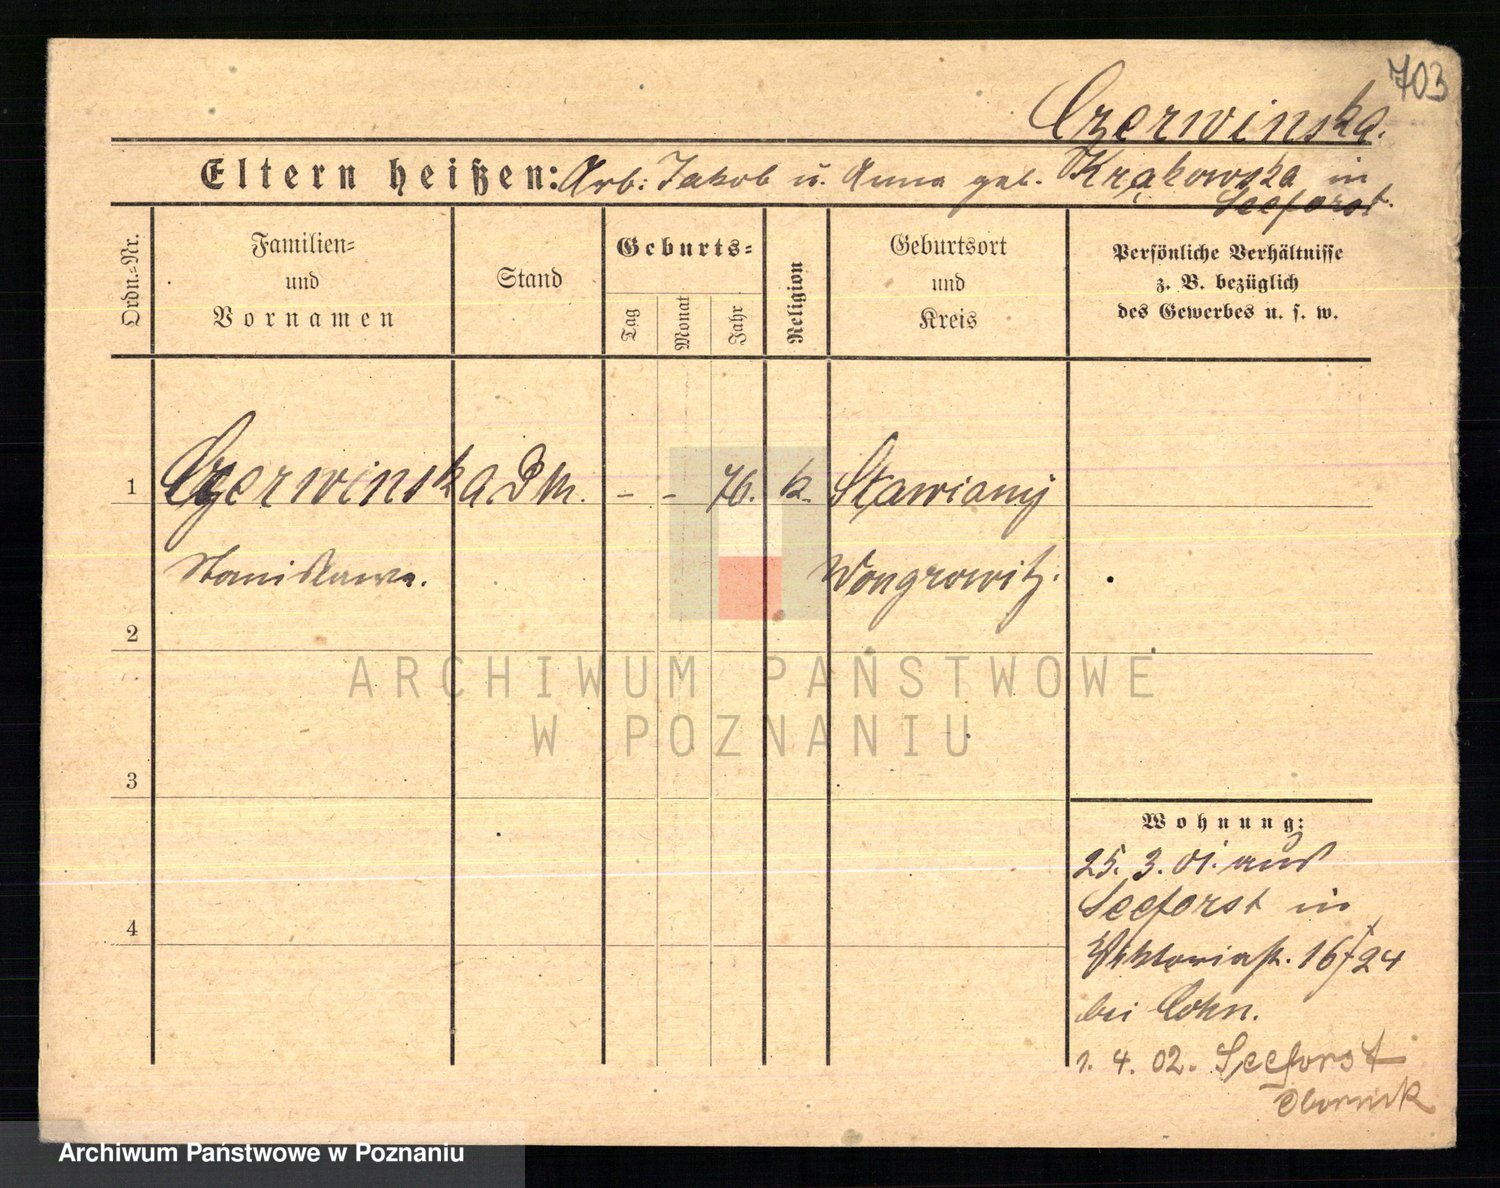 703
Czerwinska.
Eltern heißen: Arb: Jakob u. Anna geb. Krąkowska in
Seeforst.
Ordn.-Nr.
Familien-
und
Vornamen
Stand
Geburts-
Tag
Monat
Jahr
Religion
Geburtsort
und
Kreis
Persönliche Verhältnisse
z. B. bezüglich
des Gewerbes u. s. w.
1 Czerwinska D M. - - 76. k. Stawiany
Stanisława. Wongrowitz.
2
3
4
ARCHIWUM PAŃSTWOWE
W POZNANIU
Wohnung:
25. 3. 01. aus
Seeforst in
Viktoriastr. 16/24
bei Cohn.
1. 4. 02. Seeforst
Obornik
Archiwum Państwowe w Poznaniu